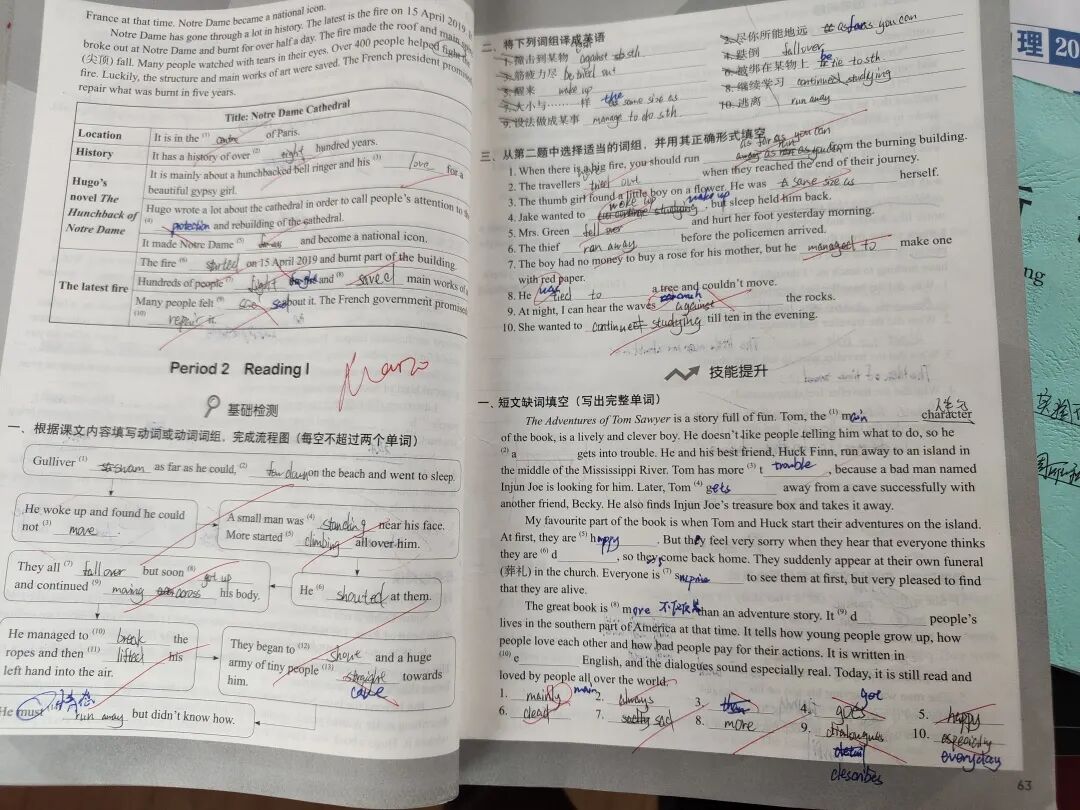 France at that time. Notre Dame became a national icon.
Notre Dame has gone through a lot in history. The latest is the fire on 15 April 2019. It
broke out at Notre Dame and burnt for over half a day. The fire made the roof and main spire
(尖顶) fall. Many people watched with tears in their eyes. Over 400 people helped fight the
fire. Luckily, the structure and main works of art were saved. The French president promised
repair what was burnt in five years.
Title: Notre Dame Cathedral
Location
It is in the (1) centre of Paris.
History
It has a history of over (2) eight hundred years.
Hugo's
novel The
Hunchback of
Notre Dame
It is mainly about a hunchbacked bell ringer and his (3) love for a
beautiful gypsy girl.
Hugo wrote a lot about the cathedral in order to call people's attention to the
(4) protection and rebuilding of the cathedral.
It made Notre Dame (5) and become a national icon.
The latest fire
The fire (6) started on 15 April 2019 and burnt part of the building.
Hundreds of people (7) fight and (8) saved main works of
Many people felt (9) about it. The French government promised
(10) repair it
Period 2 Reading I
基础检测
一、根据课文内容填写动词或动词词组,完成流程图(每空不超过两个单词)
Gulliver (1) swam as far as he could, (2) on the beach and went to sleep.
He woke up and found he could
not (3) move.
A small man was (4) standing near his face.
More started (5) climbing all over him.
They all (7) fall over but soon (8) got up
and continued (9) moving across his body.
He (6) shouted at them.
He managed to (10) break the
ropes and then (11) lifted his
left hand into the air.
They began to (12) shout and a huge
army of tiny people (13) straight towards
him. came
He must run away but didn't know how.
二、将下列词组译成英语
1. 撞击到某物 against sth
2. 尽你所能地远 as far as you can
3. 筋疲力尽 be tired out
4. 跌倒 fall over
5. 醒来 wake up
6. 被绑在某物上 be tie to sth.
7. 大小与……一样 the same size as
8. 继续学习 continued studying
9. 设法做成某事 manage to do sth
10. 逃离 run away
三、从第二题中选择适当的词组,并用其正确形式填空
1. When there is a big fire, you should run as far as you can from the burning building.
2. The travellers tired out when they reached the end of their journey.
3. The thumb girl found a little boy on a flower. He was a same size as herself.
4. Jake wanted to wake up, but sleep held him back.
5. Mrs. Green fell over and hurt her foot yesterday morning.
6. The thief ran away before the policemen arrived.
7. The boy had no money to buy a rose for his mother, but he managed to make one
with red paper.
8. He was tied to a tree and couldn't move.
9. At night, I can hear the waves against the rocks.
10. She wanted to continued studying till ten in the evening.
技能提升
一、短文缺词填空(写出完整单词)
The Adventures of Tom Sawyer is a story full of fun. Tom, the (1) main character
of the book, is a lively and clever boy. He doesn't like people telling him what to do, so he
(2) a gets into trouble. He and his best friend, Huck Finn, run away to an island in
the middle of the Mississippi River. Tom has more (3) t trouble, because a bad man named
Injun Joe is looking for him. Later, Tom (4) gets away from a cave successfully with
another friend, Becky. He also finds Injun Joe's treasure box and takes it away.
My favourite part of the book is when Tom and Huck start their adventures on the island.
At first, they are (5) happy. But they feel very sorry when they hear that everyone thinks
they are (6) d, so they come back home. They suddenly appear at their own funeral
(葬礼) in the church. Everyone is (7) surprise to see them at first, but very pleased to find
that they are alive.
The great book is (8) more 不仅仅是 than an adventure story. It (9) d people's
lives in the southern part of America at that time. It tells how young people grow up, how
people love each other and how bad people pay for their actions. It is written in
(10) e English, and the dialogues sound especially real. Today, it is still read and
loved by people all over the world.
1. mainly main 2. always 3. 4. goes got 5. happy
6. dead 7. sad 8. more 9. dialougues 10. especially
detail everyday
describes
63
理 20